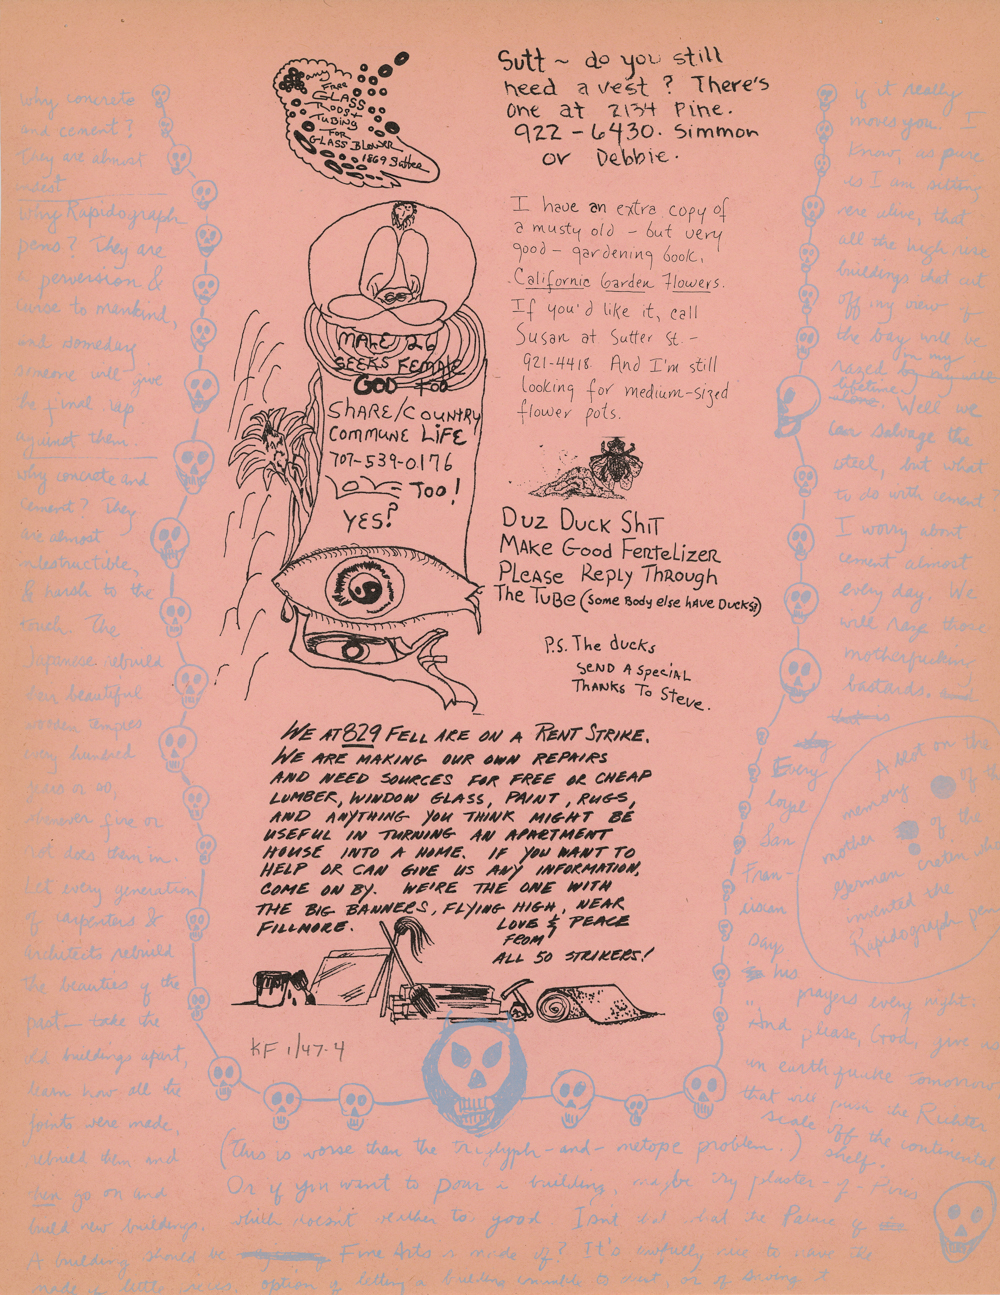 any
Free
GLASS
RODS +
TUBING
FOR
GLASS BLOWER
1869 Sutter
Sutt ~ do you still
need a vest? There's
one at 2134 Pine.
922-6430. Simmon
or Debbie.
I have an extra copy of
a musty old - but very
good - gardening book,
California Garden Flowers.
If you'd like it, call
Susan at Sutter St. -
921-4418. And I'm still
looking for medium-sized
flower pots.
MALE 26
SEEKS FEMALE
GOD TOO
SHARE/COUNTRY
COMMUNE LIFE
707-539-0176
LOVE TOO!
YES?
DUZ DUCK SHIT
MAKE GOOD FERTELIZER
PLEASE REPLY THROUGH
THE TUBE (SOME BODY ELSE HAVE DUCKS?)
P.S. THE DUCKS
SEND A SPECIAL
THANKS TO STEVE.
WE AT 829 FELL ARE ON A RENT STRIKE.
WE ARE MAKING OUR OWN REPAIRS
AND NEED SOURCES FOR FREE OR CHEAP
LUMBER, WINDOW GLASS, PAINT, RUGS,
AND ANYTHING YOU THINK MIGHT BE
USEFUL IN TURNING AN APARTMENT
HOUSE INTO A HOME. IF YOU WANT TO
HELP OR CAN GIVE US ANY INFORMATION,
COME ON BY. WE'RE THE ONE WITH
THE BIG BANNERS, FLYING HIGH, NEAR
FILLMORE.
LOVE & PEACE
FROM
ALL 50 STRIKERS!
KF 1/47.4
Why concrete
and cement?
They are almost
Why Rapidograph
pens? They are
a perversion &
curse to mankind,
and someday
someone will give
the final rap
against them.
Why concrete and
cement? They
are almost
indestructible,
& harsh to the
touch. The
Japanese rebuild
their beautiful
wooden temples
every hundred
years or so,
whenever fire or
rot does them in.
Let every generation
of carpenters &
architects rebuild
the beauties of the
past - take the
old buildings apart,
learn how all the
joints were made,
rebuild them and
then go on and
build new buildings.
A building should be
made of little pieces.
(This is worse than the triglyph-and-metope problem.)
Or if you want to pour a building, maybe try plaster-of-Paris
which doesn't weather too good. Isn't that what the Palace of
Fine Arts is made of? It's awfully nice to have the
option of letting a building crumble to dust, or of saving it
if it really
moves you. I
know, as pure
as I am sitting
here alive, that
all the high rise
buildings that cut
off my view of
the bay will be
razed in my
lifetime. Well we
can salvage the
steel, but what
to do with cement?
I worry about
cement almost
every day. We
will raze those
motherfucking
bastards.
Every
loyal
San
Fran-
ciscan
says
his
prayers every night:
"And please, God, give us
an earthquake tomorrow
that will push the Richter
scale off the continental
shelf.
A blot on the
memory of the
mother of the
German cretin who
invented the
Rapidograph pen